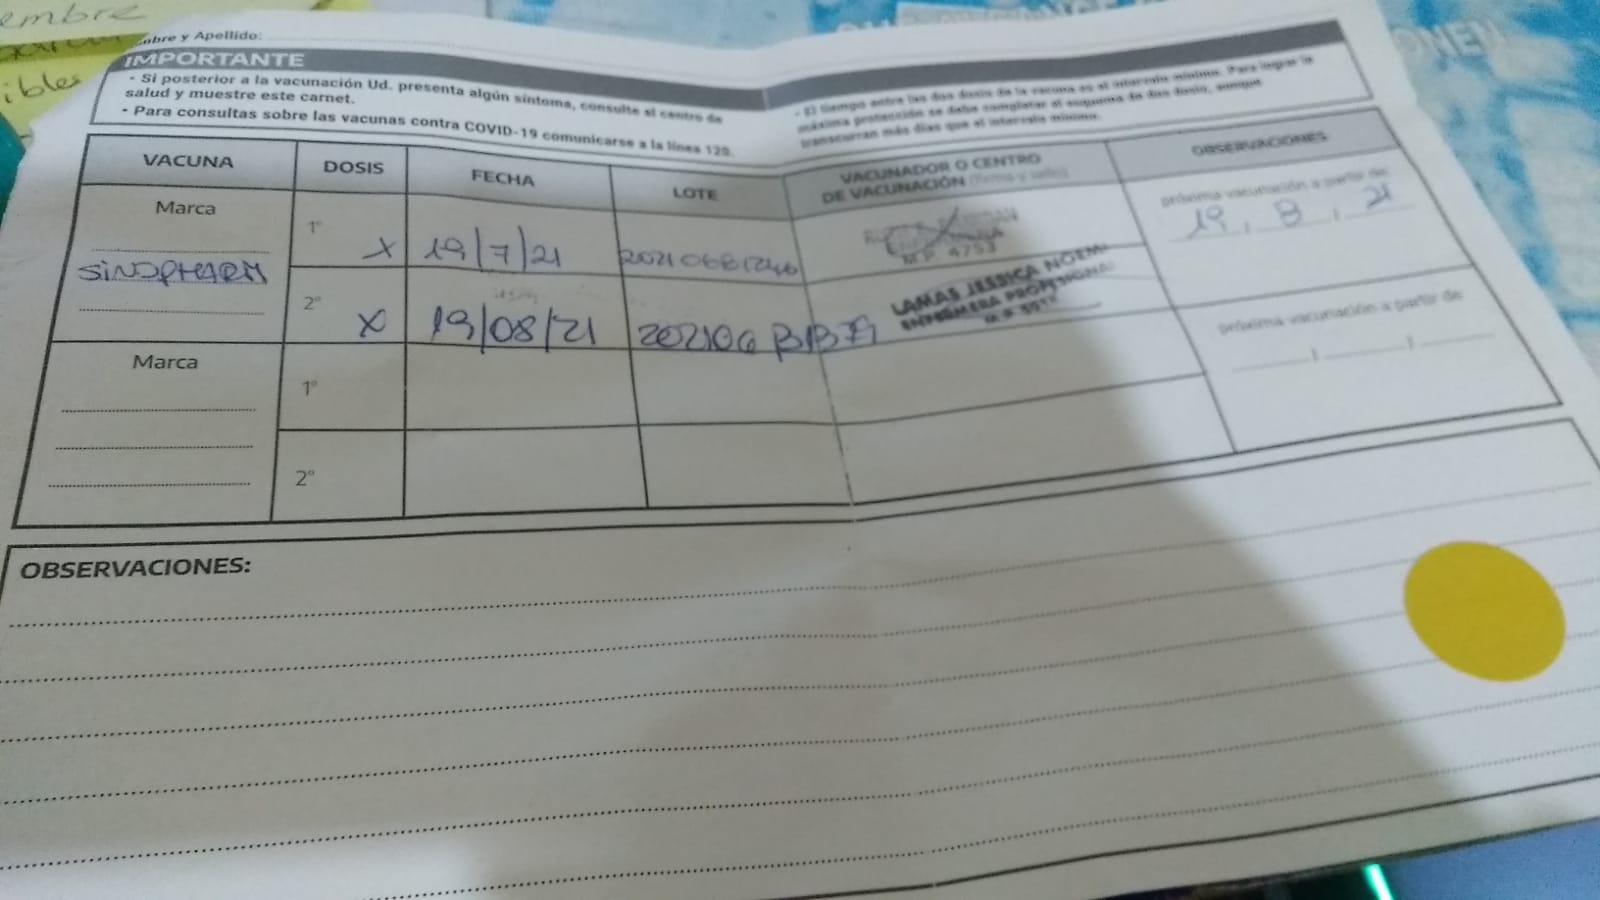 embre
ibles
ONEN
bre y Apellido:
IMPORTANTE
- Si posterior a la vacunación Ud. presenta algún síntoma, consulte al centro de
salud y muestre este carnet.
- Para consultas sobre las vacunas contra COVID-19 comunicarse a la línea 120.
- El tiempo entre las dos dosis de la vacuna es el intervalo mínimo. Para lograr la
máxima protección se debe completar el esquema de dos dosis, aunque
transcurran más días que el intervalo mínimo.
VACUNA DOSIS FECHA LOTE VACUNADOR O CENTRO
DE VACUNACIÓN (firma y sello) OBSERVACIONES
Marca
SINOPHARM
1° X 19/7/21
M.P. 4753
próxima vacunación a partir de:
19, 8, 21
2° X 19/08/21
LAMAS JESSICA NOEMI
ENFERMERA PROFESIONAL
próxima vacunación a partir de:
Marca
1°
2°
OBSERVACIONES: